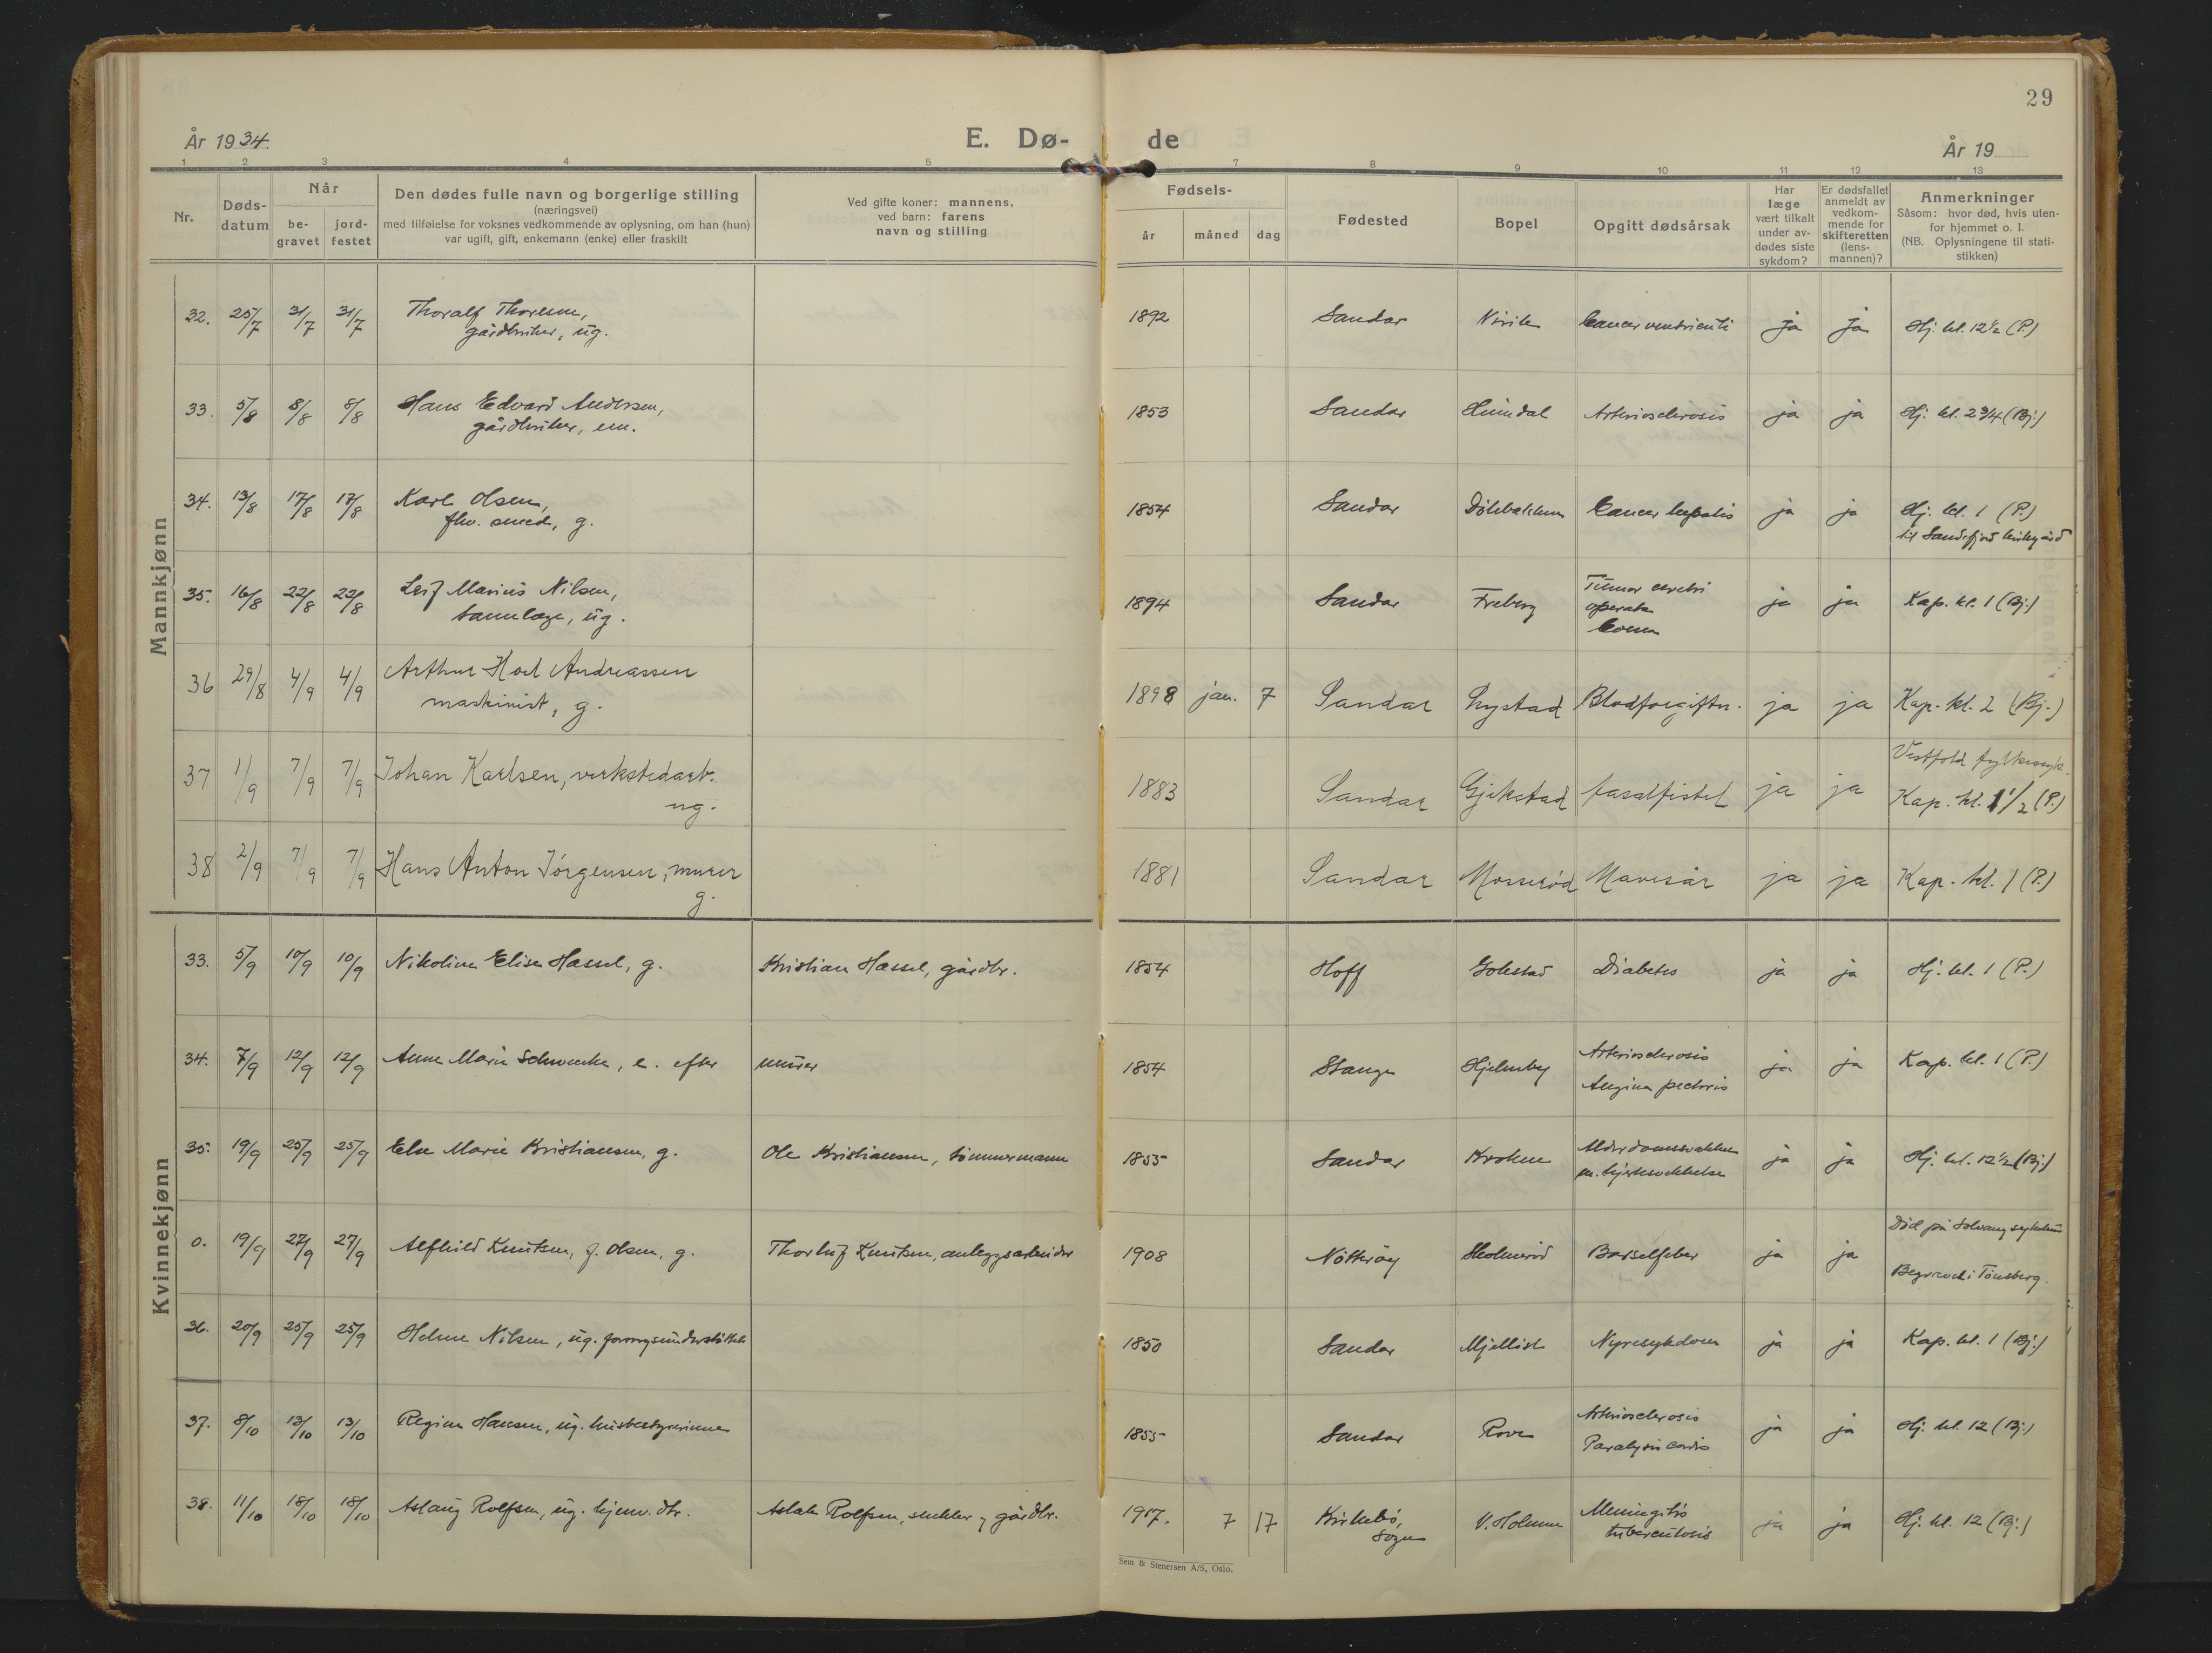 29
År 1934
E. Dø- de
År 19
1 2 3 4 5 7 8 9 10 11 12 13
Nr.
Døds-
datum
Når
be-
gravet
jord-
festet
Den dødes fulle navn og borgerlige stilling
(næringsvei)
med tilføielse for voksnes vedkommende av oplysning, om han (hun)
var ugift, gift, enkemann (enke) eller fraskilt
Ved gifte koner: mannens,
ved barn: farens
navn og stilling
Fødsels-
år måned dag
Fødested
Bopel
Opgitt dødsårsak
Har
læge
vært tilkalt
under av-
dødes siste
sykdom?
Er dødsfallet
anmeldt av
vedkom-
mende for
skifteretten
(lens-
mannen)?
Anmerkninger
Såsom: hvor død, hvis uten-
for hjemmet o. l.
(NB. Oplysningene til stati-
stikken)
Mannkjønn
32. 25/7 31/7 31/7 Thoralf Thoresen, 1892 Sandar Cancer ventriculi ja ja Hj. kl. 12½ (P.)
gårdbruker, ug.
33. 5/8 8/8 8/8 Hans Edvard Andersen, 1853 Sandar Unndal Arteriosclerosis ja ja Hj. kl. 2 3/4 (Bj.)
gårdbruker, em.
34. 13/8 17/8 17/8 Karl Olsen, 1854 Sandar Dölebakken Cancer hepatis ja ja Hj. kl. 1 (P.)
fhv. smed, g. til Sandefjord kirkegård
35. 16/8 22/8 22/8 Leif Marius Nilsen, 1894 Sandar Freberg Tumor cerebri ja ja Kap. kl. 1 (Bj.)
tannlæge, ug. operata
Coma
36 29/8 4/9 4/9 Arthur Hoel Andreassen
maskinist, g. 1898 jan. 7 Sandar Lystad Blodforgiftn. ja ja Kap. kl. 2 (Bj.)
37 1/9 7/9 7/9 Johan Karlsen, verkstedarb. 1883 Sandar Gjekstad fasalfistel ja ja Vestfold fylkessyk.
ug. Kap. kl. 1 1/2 (P.)
38 2/9 7/9 7/9 Hans Anton Jörgensen, murer 1881 Sandar Mosseröd Mavesår ja ja Kap. kl. 1 (P.)
g.
Kvinnekjønn
33. 5/9 10/9 10/9 Nikoline Elise Hassel, g. Kristian Hassel, gårdbr. 1854 Hoff Gokstad Diabetes ja ja Hj. kl. 1 (P.)
34. 7/9 12/9 12/9 Anne Marie Schwencke, e. efter murer 1854 Stange Hjelmby Arteriosclerosis ja ja Kap. kl. 1 (P.)
Angina pectoris
35. 19/9 25/9 25/9 Else Marie Kristiansen, g. Ole Kristiansen, tömmermann 1855 Sandar Kroken Alderdomssvakhet ja ja Hj. kl. 12½ (Bj.)
m. hjertesvekkelse
0. 19/9 27/9 27/9 Alfhild Knutsen, f. Olsen, g. Thorleif Knutsen, anleggsarbeider 1908 Nötteröy Skolmeröd Barselfeber ja ja Död på Solvang sykehus
Begravet i Tönsberg.
36. 20/9 25/9 25/9 Helene Nilsen, ug. forsorgsunderstöttet 1850 Sandar Mjellist Nyresykdom ja ja Kap. kl. 1 (Bj.)
37. 8/10 13/10 13/10 Regine Hansen, ug. husbestyrerinne 1855 Sandar Rove Arteriosclerosis ja ja Hj. kl. 12 (Bj.)
Paralysis cordis
38. 11/10 18/10 18/10 Aslaug Rolfsen, ug. hjemv. dtr. Aslak Rolfsen, snekker og gårdbr. 1917. 7 17 Kirkebö, V. Holmen Meningitis ja ja Hj. kl. 12 (Bj.)
Sogn tuberculosis
Sem & Stenersen A/S, Oslo.